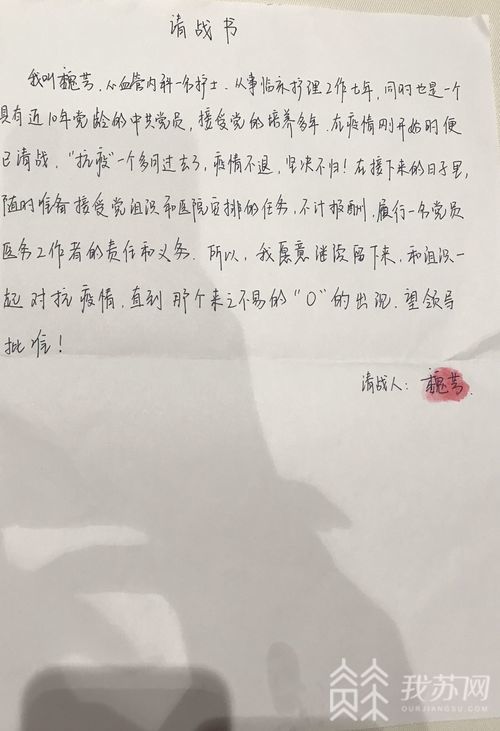 请战书
我叫魏芸，心血管内科一名护士。从事临床护理工作七年，同时也是一个
具有近10年党龄的中共党员，接受党的培养多年。在疫情刚开始时便
已请战。"抗疫"一个多月过去了，疫情不退，坚决不归！在接下来的日子里，
随时准备接受党组织和医院安排的任务，不计报酬，履行一名党员
医务工作者的责任和义务。所以，我愿意继续留下来，和组织一
起对抗疫情，直到那个来之不易的"0"的出现。望领导
批准！
请战人：魏芸.
我苏网
OURJIANGSU.COM